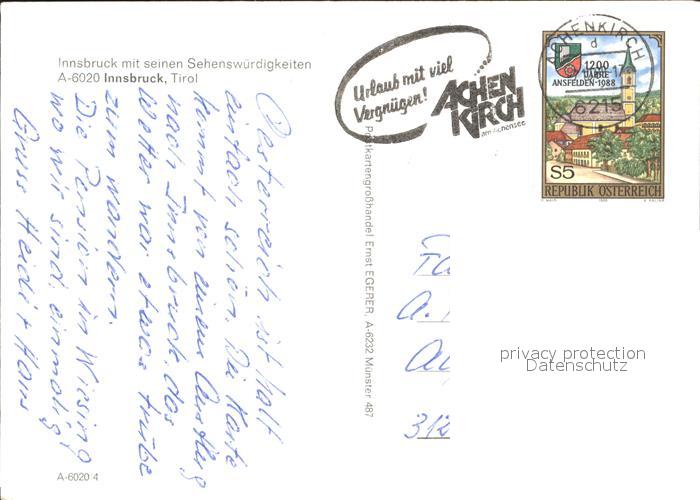 Innsbruck mit seinen Sehenswürdigkeiten
A-6020 Innsbruck, Tirol
Oesterreich ist halt
einfach schön. Die Karte
kommt von einem Ausflug
nach Innsbruck, das
Wetter war etwas trübe
zum wandern.
Die Pension in Wiesing
wo wir sind, einmalig!
Gruss Heidi + Hans
A-6020/4
Postkartengroßhandel Ernst EGERER, A-6232 Münster 487
Urlaub mit viel
Vergnügen!
ACHEN
KIRCH
am Achensee
CHENKIRCH
d
6215
1200
JAHRE
ANSFELDEN·1988
S5
REPUBLIK ÖSTERREICH
1988
A.
312
privacy protection
Datenschutz